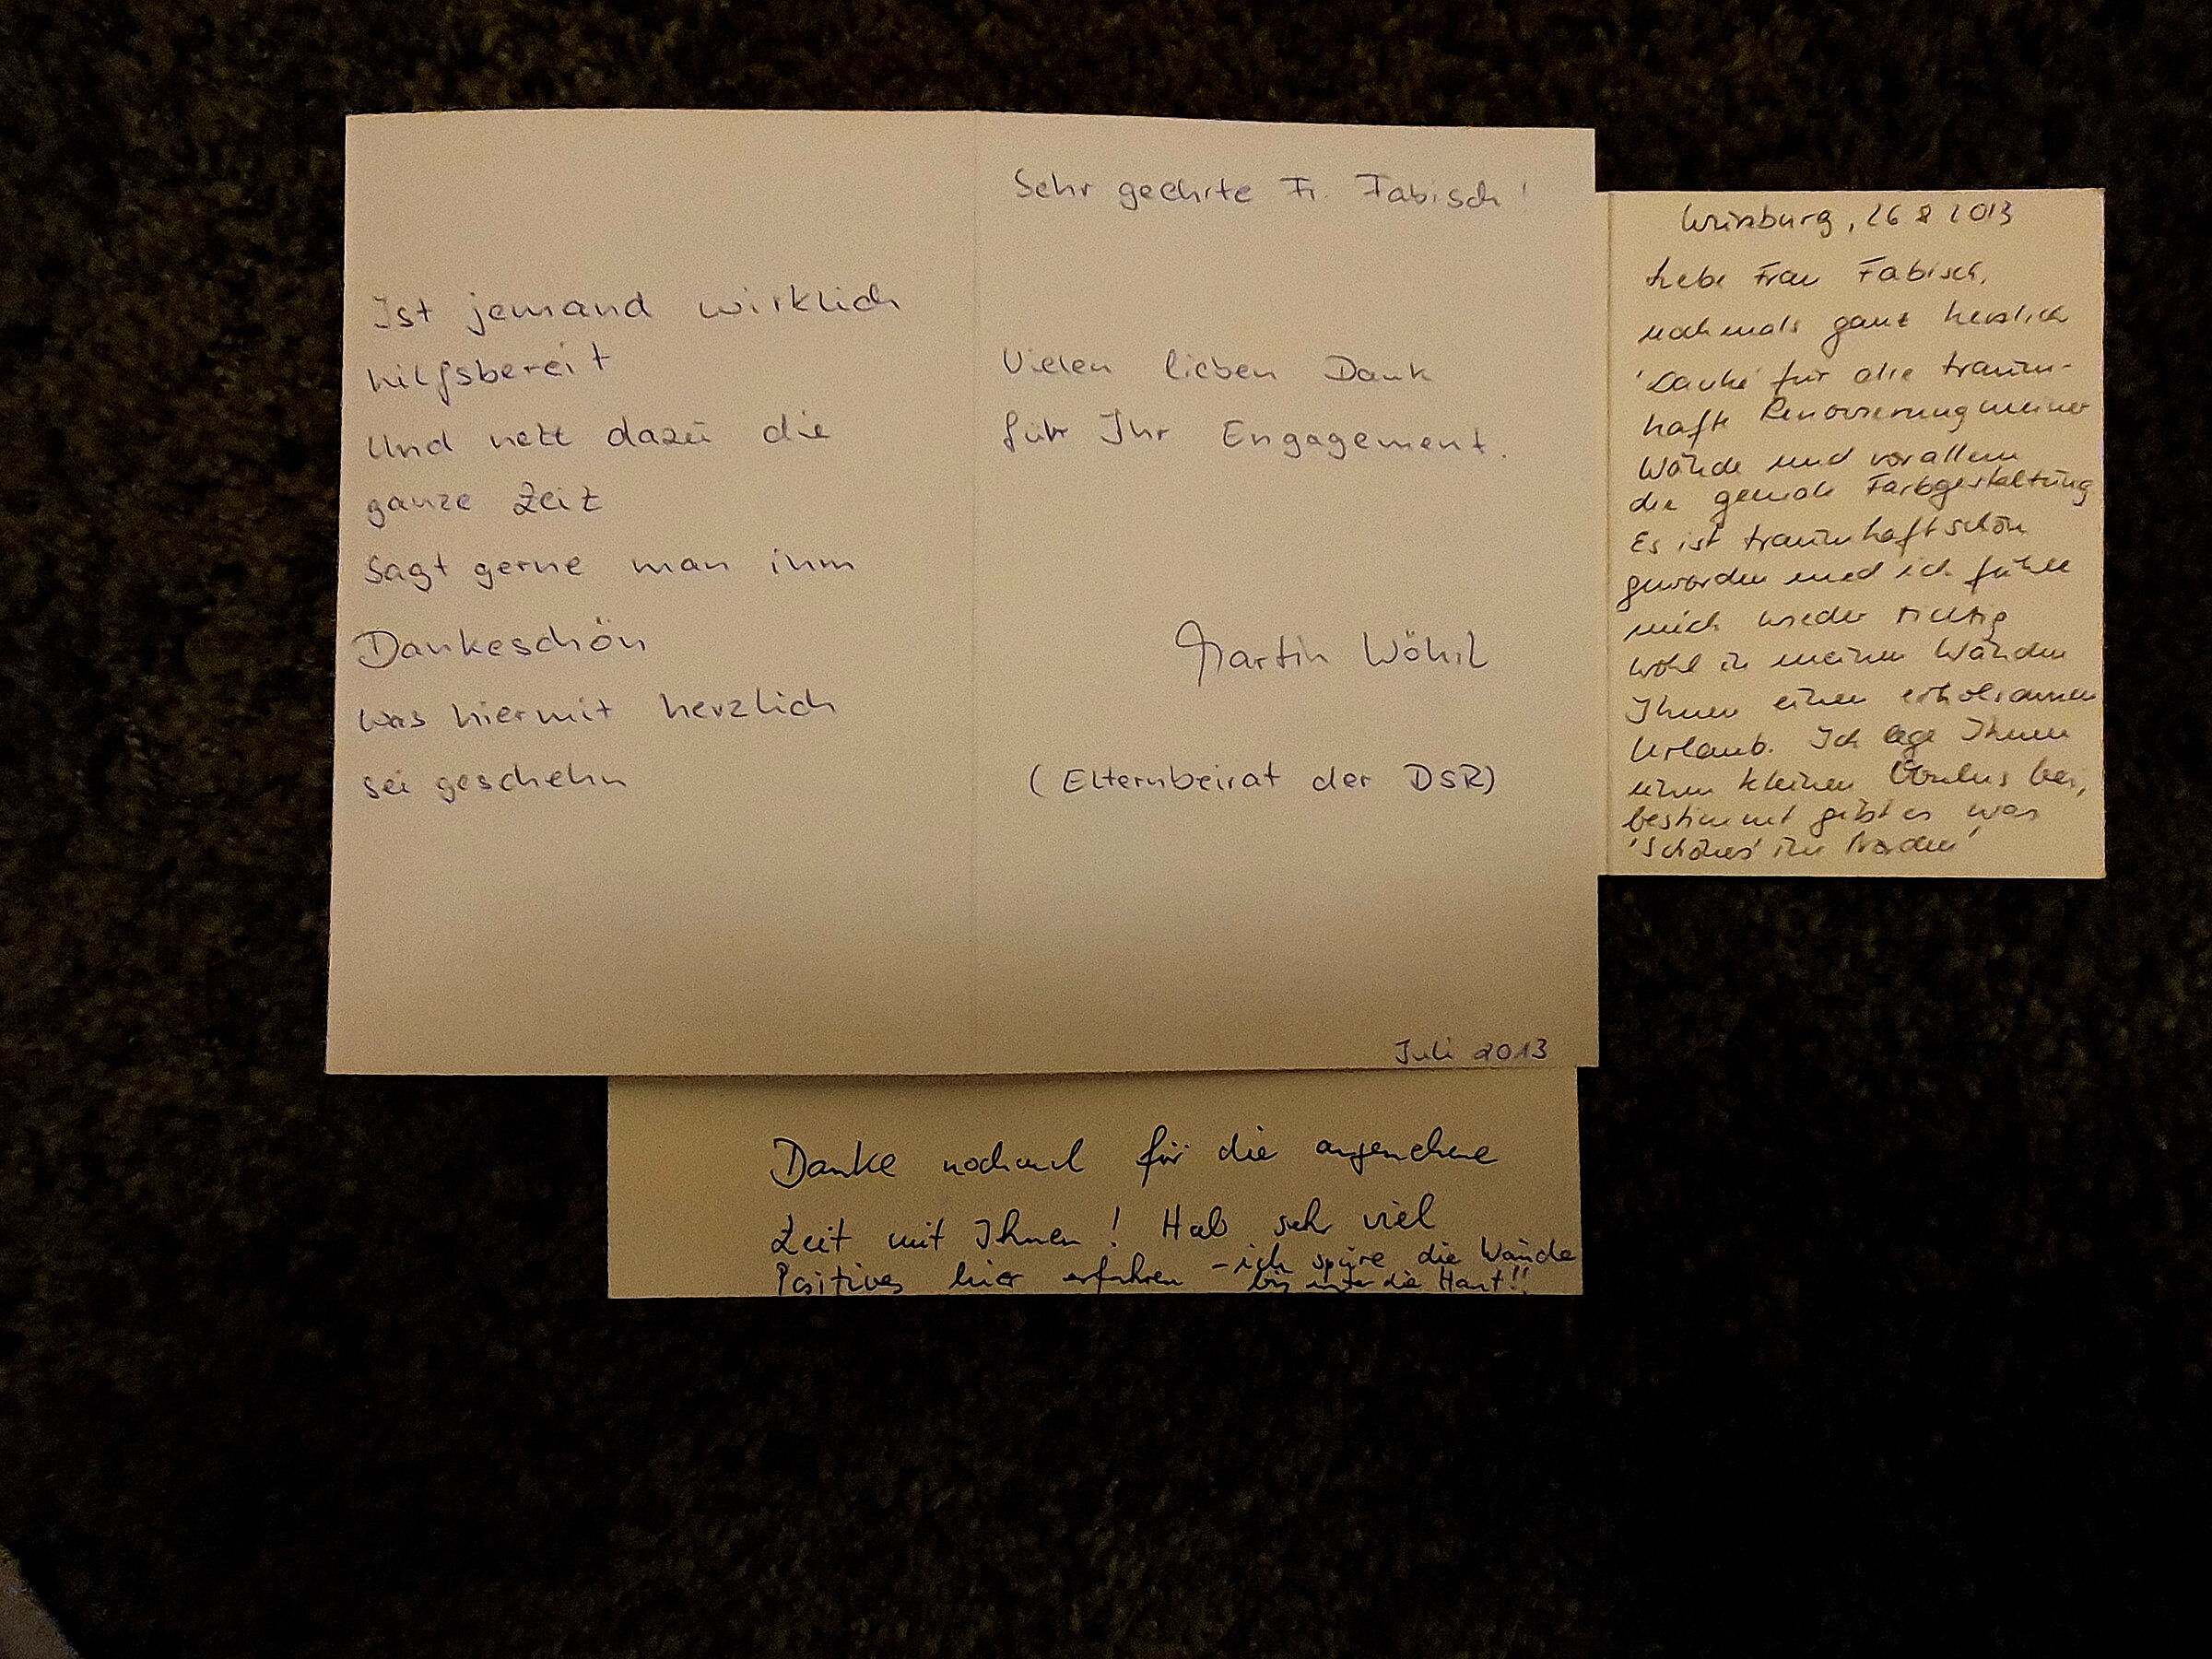 Ist jemand wirklich
hilfsbereit
Und nett dazu die
ganze Zeit
Sagt gerne man ihm
Dankeschön
Was hiermit herzlich
sei geschehn
Sehr geehrte Fr. Fabisch!
Vielen lieben Dank
für Ihr Engagement.
Martin Wöhrl
(Elternbeirat der DSR)
Juli 2013
Würzburg, 26 8 2013
Liebe Frau Fabisch,
nochmals ganz herzlich
'Danke' für die traum-
hafte Renovierung meiner
Wände und vor allem
die geniale Farbgestaltung
Es ist traumhaft schön
geworden und ich fühle
mich wieder richtig
wohl in meinen Wänden
Ihnen einen erholsamen
Urlaub. Ich lege Ihnen
einen kleinen Bonus bei,
bestimmt gibt es was
'Schönes' im Norden'
Danke nochmal für die angenehme
Zeit mit Ihnen! Hab sehr viel
Positives hier erfahren - ich spüre die Wände
bis unter die Haut!!